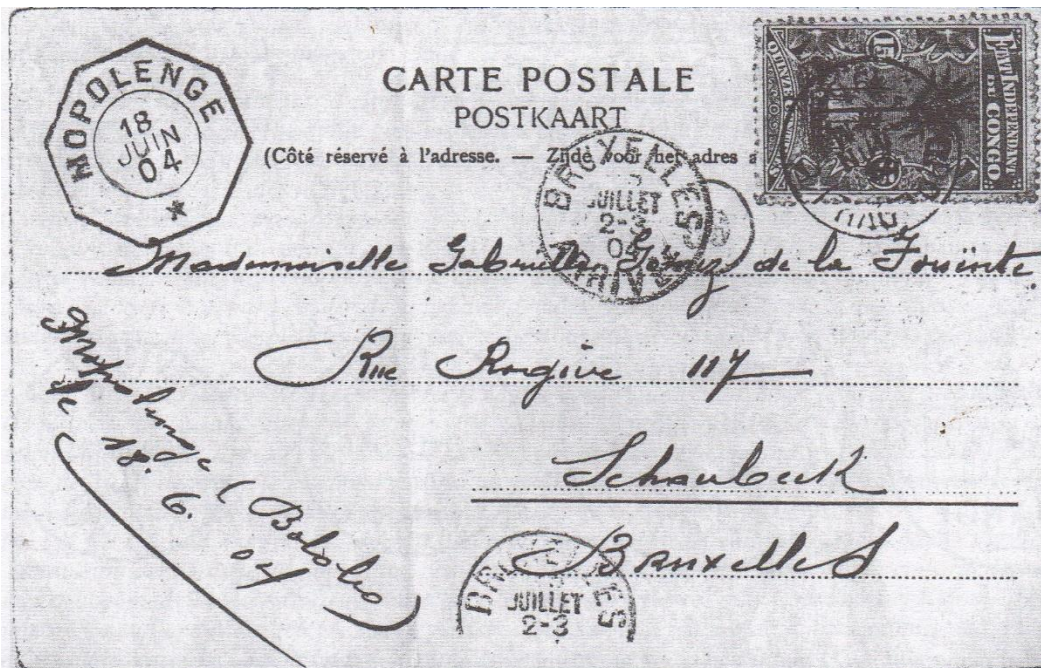 MOPOLENGE
18
JUIN
04
CARTE POSTALE
POSTKAART
(Côté réservé à l'adresse. — Zijde voor het adres
ETAT INDÉPENDANT
DU CONGO
BRUXELLES
JUILLET
2-3
04
ARRIVÉE
Mademoiselle Gabrielle de la Fouïnte.
Rue Rogier 117
Schaerbeek
Bruxelles
Mopolenge (Bololo)
le 18. 6. 04
BRUXELLES
JUILLET
2-3